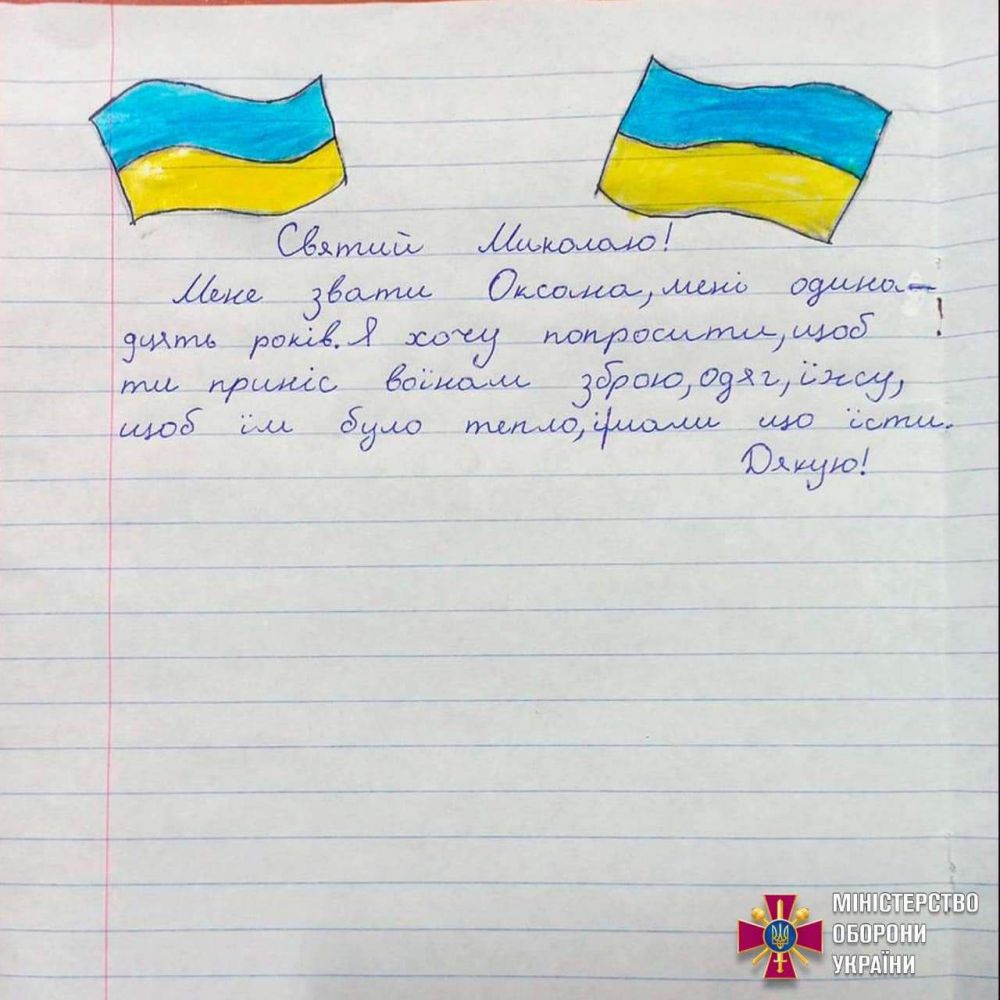 Святий Миколаю!
Мене звати Оксана, мені одина-
дцять років. Я хочу попросити, щоб
ти приніс воїнам зброю, одяг, їжу,
щоб їм було тепло, і мали що їсти.
Дякую!
МІНІСТЕРСТВО
ОБОРОНИ
УКРАЇНИ